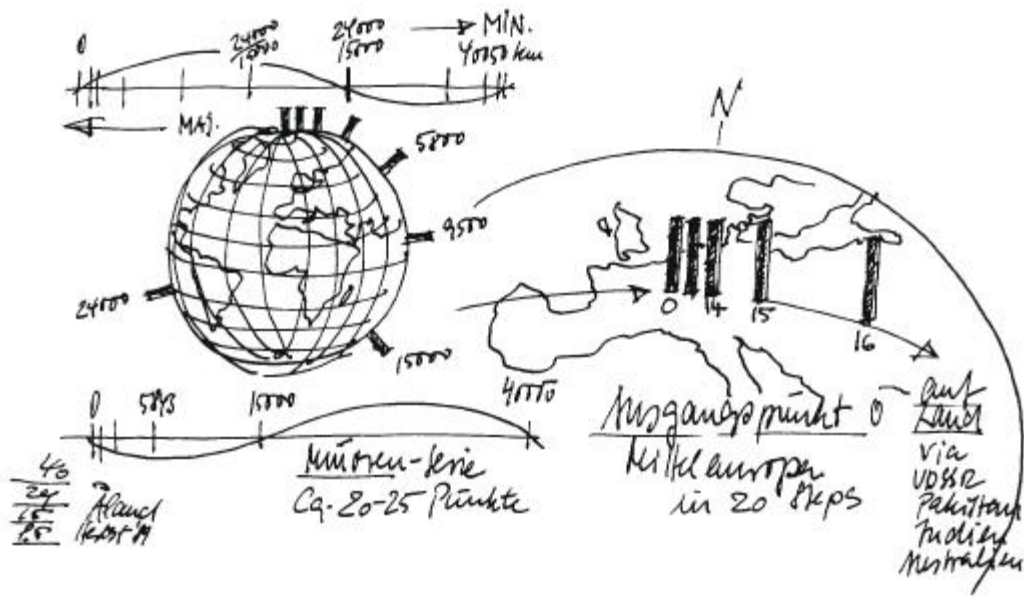 0
24000
15000
24000
15000
→ MIN.
40050 km
← MAX.
5800
9500
24000
15000
N
0 14 15 16
0 5893 15000 40050
-Serie
Ca. 20-25 Punkte
40
Åland
Ausgangspunkt 0
Mitteleuropa
in 20 Steps
auf
Land
via
UDSSR
Pakistan
Indien
Australien